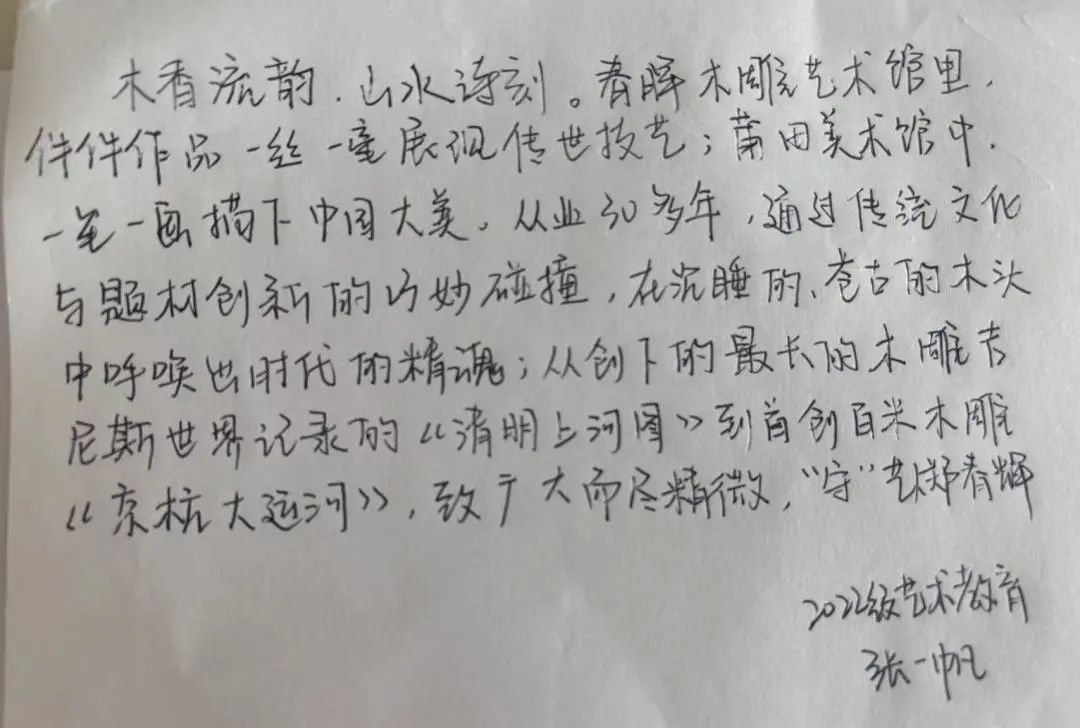 木香流韵，山水诗刻。春晖木雕艺术馆里，
件件作品一丝一毫展现传世技艺；莆田美术馆中，
一笔一画描下中国大美。从业30多年，通过传统文化
与题材创新的巧妙碰撞，在沉睡的、苍古的木头
中呼唤出时代的精魂；从创下的最长的木雕吉
尼斯世界记录的《清明上河图》到首创百米木雕
《京杭大运河》，致广大而尽精微，“守”艺郑春辉
2022级艺术教育
张一帆